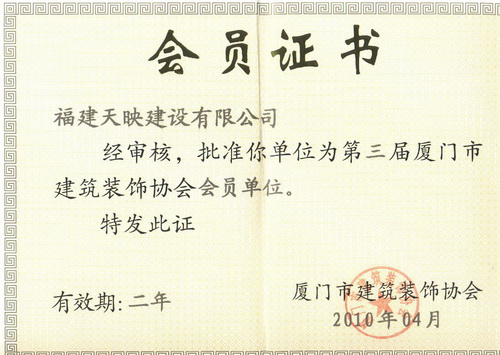 会员证书
福建天映建设有限公司
经审核，批准你单位为第三届厦门市
建筑装饰协会会员单位。
特发此证
有效期:二年
厦门市建筑装饰协会
2010年04月